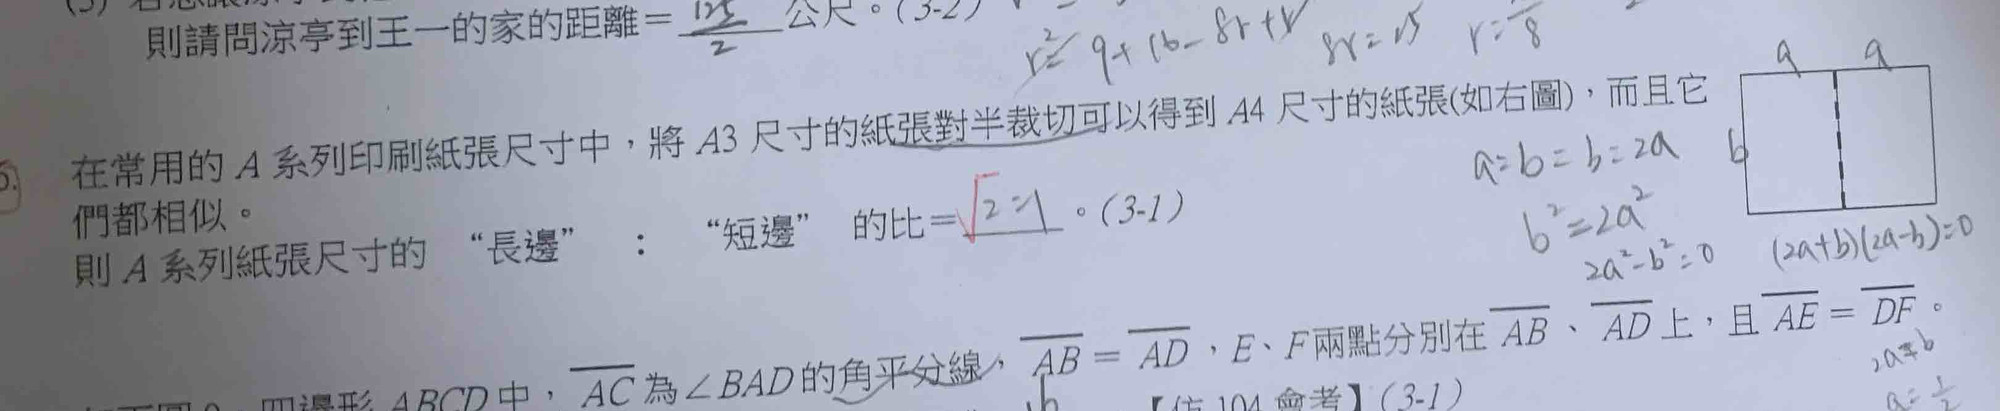 則請問涼亭到王一的家的距離= 公尺。(3-2)
8r=15
在常用的 A 系列印刷紙張尺寸中，將 A3 尺寸的紙張對半裁切可以得到 A4 尺寸的紙張(如右圖)，而且它
們都相似。
則 A 系列紙張尺寸的 “長邊” : “短邊” 的比=√2:1。(3-1)
a a
b
a:b=b:2a
b²=2a²
2a²-b²=0
(2a+b)(2a-b)=0
四邊形 ABCD 中，AC 為∠BAD 的角平分線，AB = AD，E、F 兩點分別在 AB、AD 上，且 AE = DF。
【仿 104 會考】(3-1)